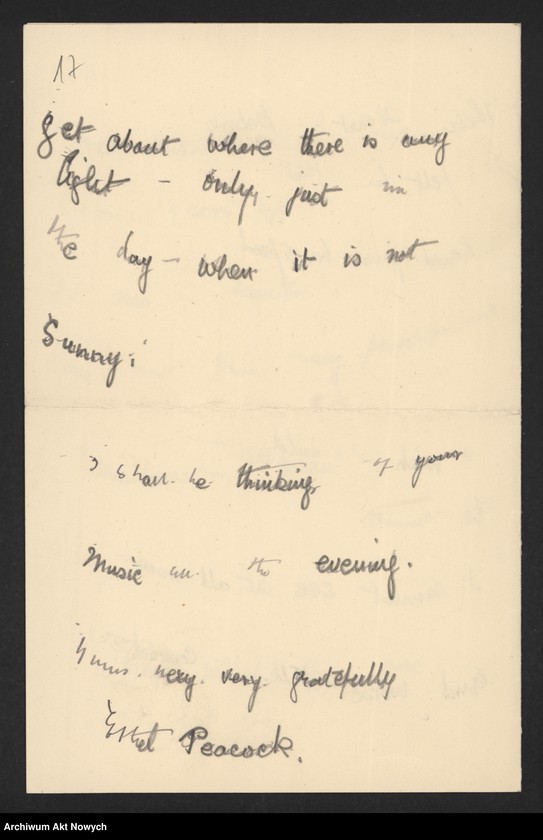 17
get about where there is any
light - only, just in
the day - when it is not
Sunny:
I shall be thinking of your
Music in the evening.
Yours. very. very. gratefully
Ethel Peacock.
Archiwum Akt Nowych